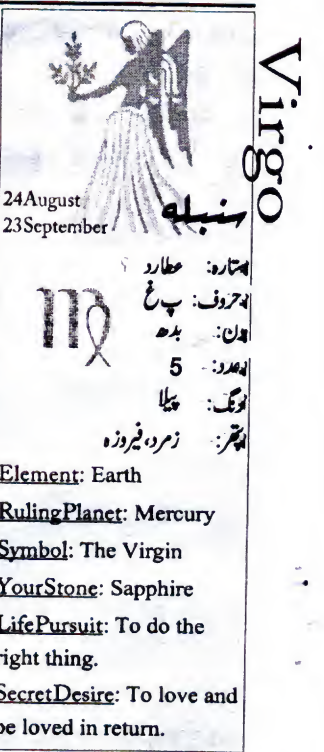 Virgo
سنبلہ
24August
23September
ستارہ: عطارد
حروف: پ غ
دن: بدھ
عدد: 5
رنگ: پیلا
پتھر: زمرد، فیروزہ
Element: Earth
RulingPlanet: Mercury
Symbol: The Virgin
YourStone: Sapphire
LifePursuit: To do the
right thing.
SecretDesire: To love and
be loved in return.